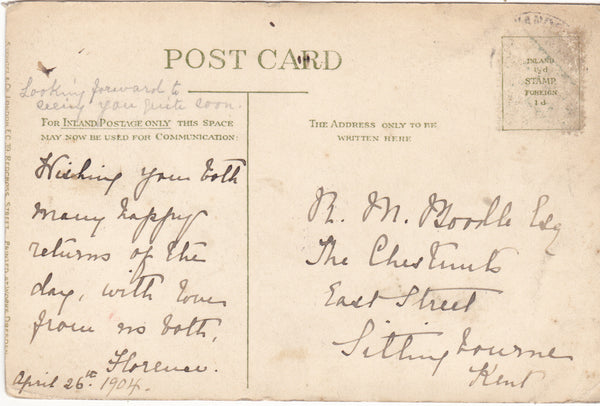 POST CARD
Looking forward to
seeing you quite soon.
FOR INLAND POSTAGE ONLY THIS SPACE
MAY NOW BE USED FOR COMMUNICATION:
THE ADDRESS ONLY TO BE
WRITTEN HERE
INLAND
½d
STAMP
FOREIGN
1d
Wishing you both
many happy
returns of the
day, with love
from us both,
Florence.
April 26th. 1904.
R. M. Boodle Esq
The Chestnuts
East Street
Sittingbourne
Kent